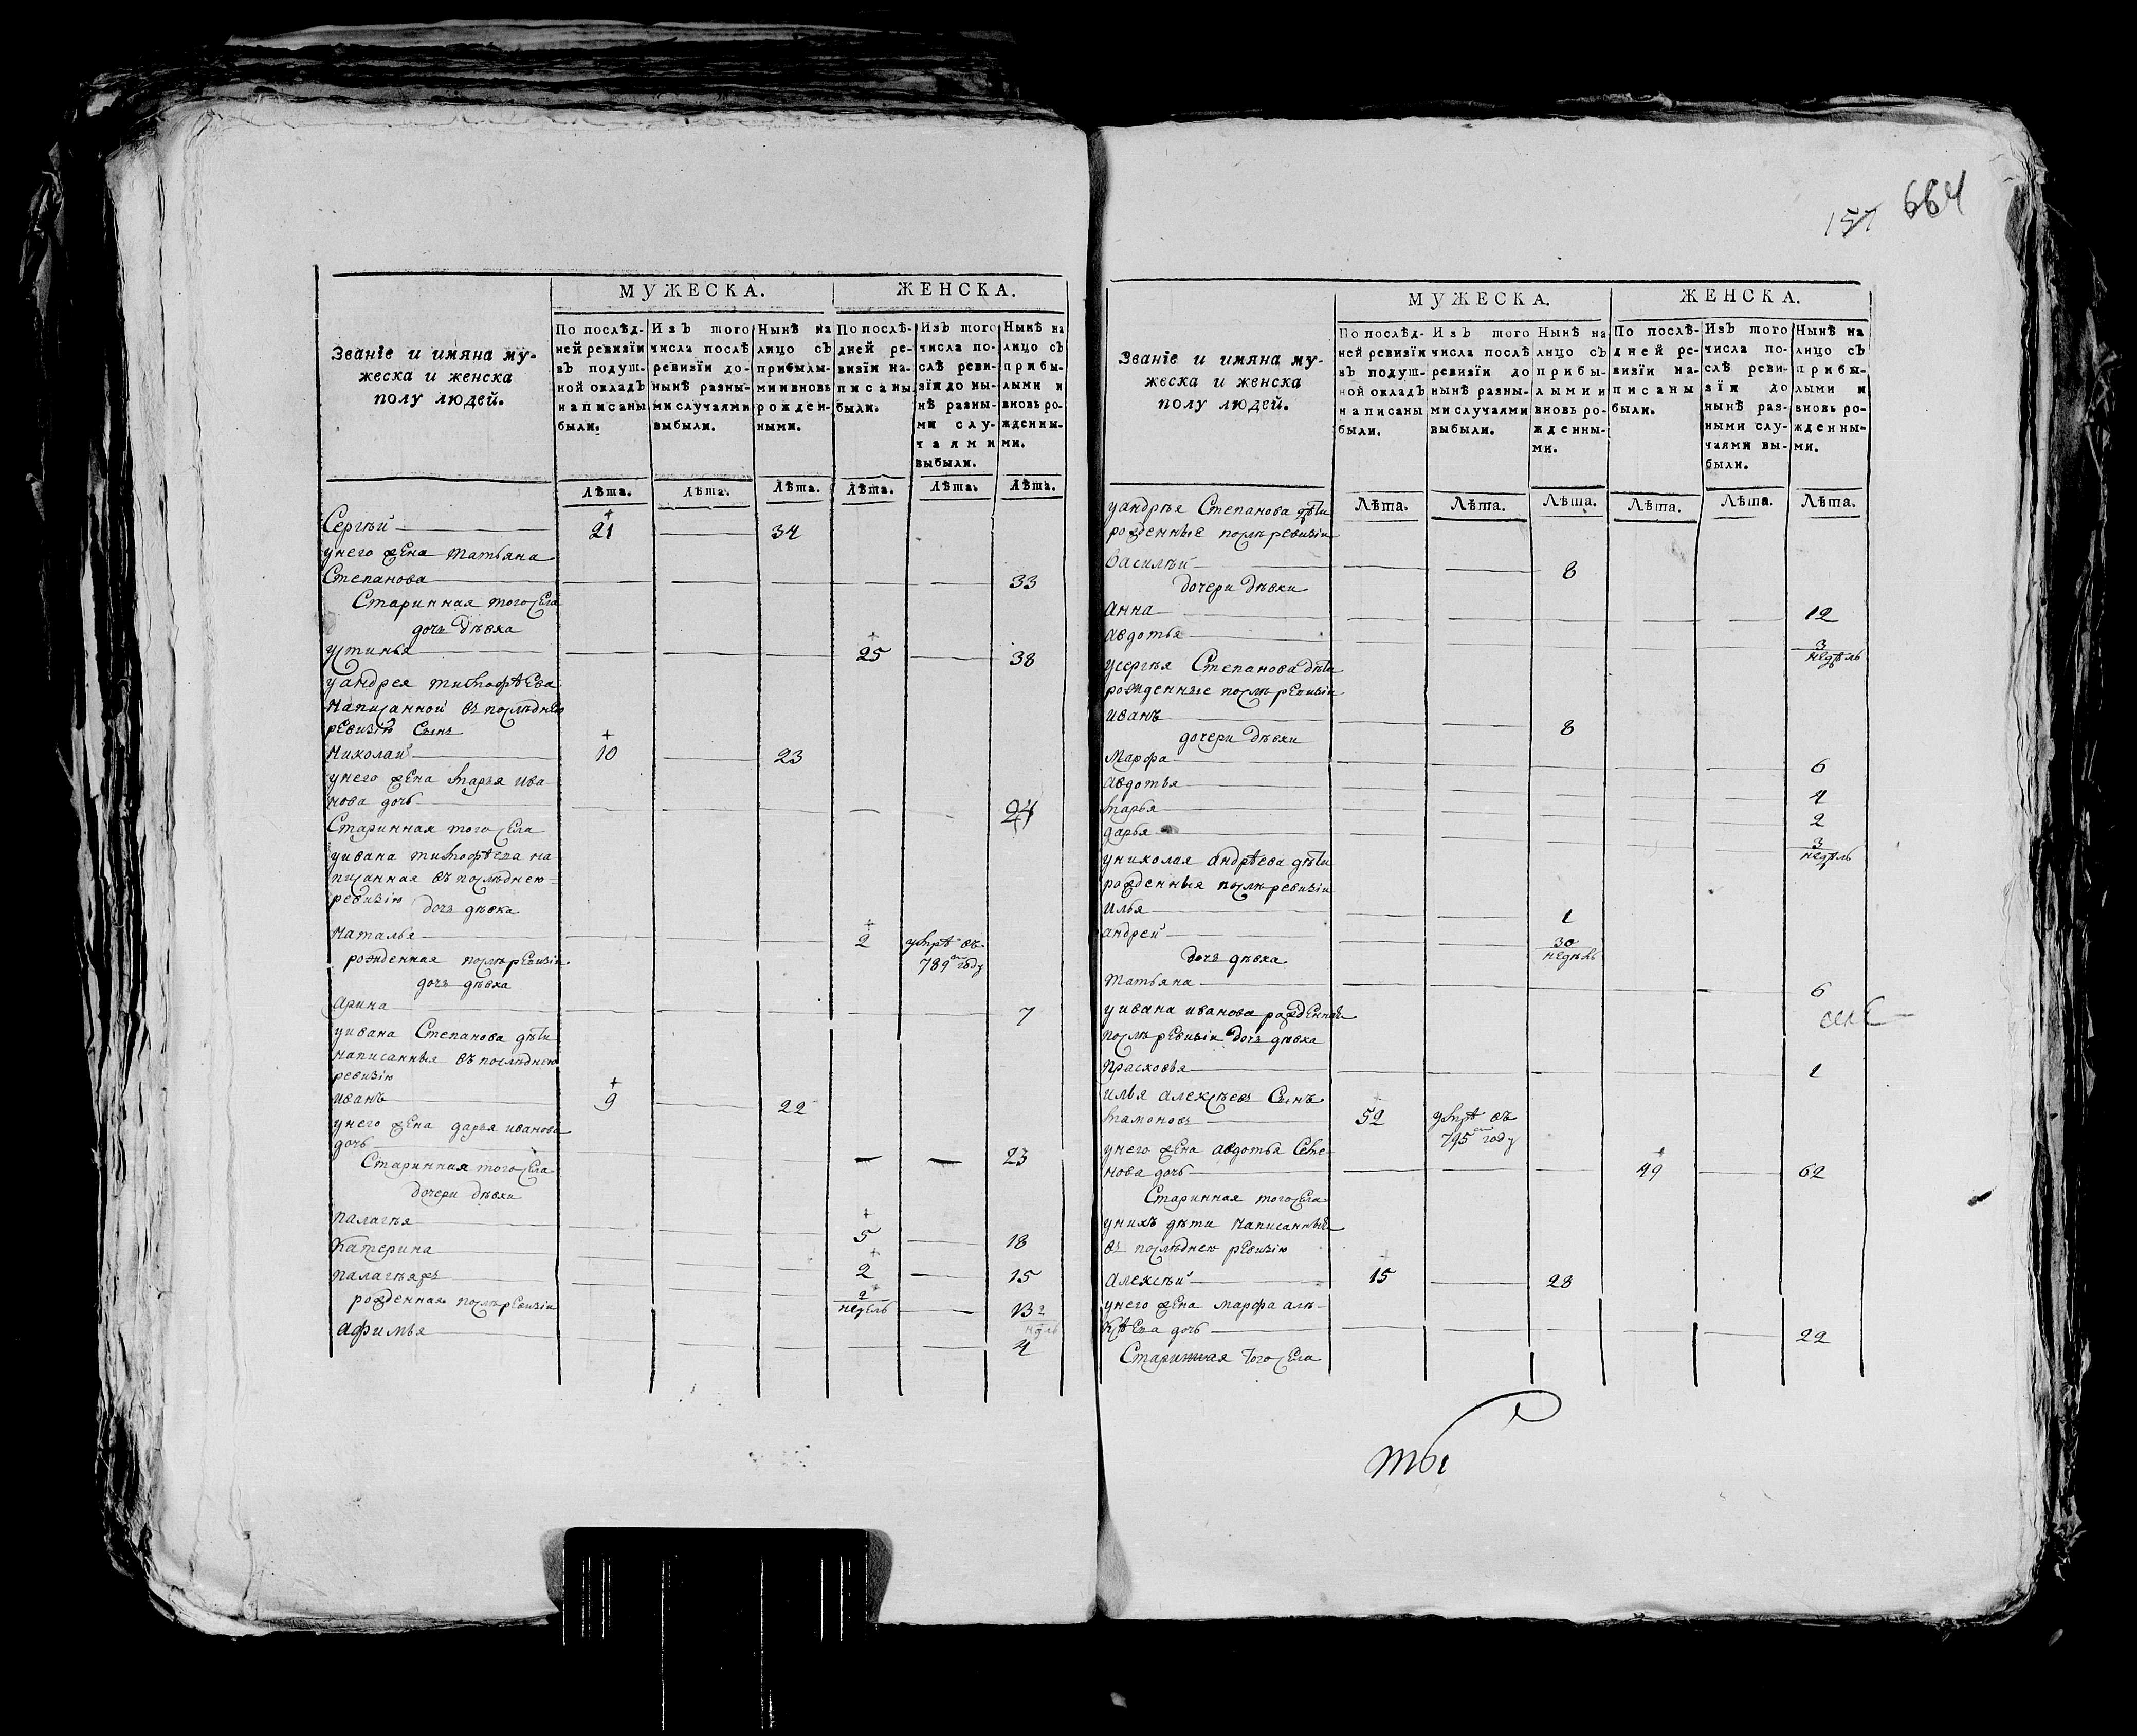 МУЖЕСКА. ЖЕНСКА.
Званїе и имяна му-
жеска и женска
полу людей.
По послѣд-
ней ревизїи
въ подуш-
ной окладъ
написаны
были.
Изъ того
числа послѣ
ревизїи до-
нынѣ разны-
ми случаями
выбыли.
Нынѣ на
лицо съ
прибылы-
ми и вновь
рожден-
ными.
По послѣ-
дней ре-
визїи на-
писаны
были.
Изъ того
числа по-
слѣ реви-
зїи до ны-
нѣ разны-
ми слу-
чаями
выбыли.
Нынѣ на
лицо съ
прибы-
лыми и
вновь ро-
жденны-
ми.
Лѣта. Лѣта. Лѣта. Лѣта. Лѣта. Лѣта.
Сергѣй 21 34
унего жена татьяна
Степанова 33
Старинная того села
дочь дѣвка
устинья 25 38
уандрея тимофѣева
написанной въ послѣднею
ревизiю сынъ
николай 10 23
унего жена марья ива
нова дочь 24
Старинная того села
уивана тимофѣева на
писанная въ послѣднею
ревизiю дочь дѣвка
наталья 2 умрѣ въ
789 году
рожденная послѣ ревизiи
дочь дѣвка
арина 7
уивана Степанова дѣти
написанныя въ послѣднею
ревизiю
иванъ 9 22
унего жена дарья иванова
дочь 23
Старинная того села
дочери дѣвки
палагѣя 5 18
катерина 2 15
палагѣяжъ 2 недель 13 2
рожденная послѣ ревизiи
афимья 4
157 664
МУЖЕСКА. ЖЕНСКА.
Званїе и имяна му-
жеска и женска
полу людей.
По послѣд-
ней ревизїи
въ подуш-
ной окладъ
написаны
были.
Изъ того
числа послѣ
ревизїи до
нынѣ разны-
ми случаями
выбыли.
Нынѣ на
лицо съ
прибы-
лыми и
вновь ро-
жденны-
ми.
По послѣ-
дней ре-
визїи на-
писаны
были.
Изъ того
числа по-
слѣ реви-
зїи до
нынѣ раз-
ными слу-
чаями вы-
были.
Нынѣ на
лицо съ
прибы-
лыми и
вновь ро-
жденны-
ми.
Лѣта. Лѣта. Лѣта. Лѣта. Лѣта. Лѣта.
уандрѣя Степанова дѣти
рожденные послѣ ревизiи
василѣй 8
дочери дѣвки
анна 12
авдотья 3 недѣль
усергѣя Степанова дѣти
рожденные послѣ ревизiи
иванъ 8
дочери дѣвки
марфа 6
авдотья 4
марья 2
дарья 3 недѣль
униколая андрѣева дѣти
рожденныя послѣ ревизiи
илья 1
андрей 30 недѣль
дочь дѣвка
татьяна 6
уивана иванова рожденная
послѣ ревизiи дочь дѣвка
прасковья 1
илья алексѣевъ сынъ
мамоновъ 52 умрѣ въ
795 году
унего жена авдотья семе
нова дочь 49 62
Старинная того села
унихъ дѣти написанныя
въ послѣднею ревизiю
алексѣй 15 28
унего жена марфа алѣ
ксѣева дочь 22
Старинная того села
ты